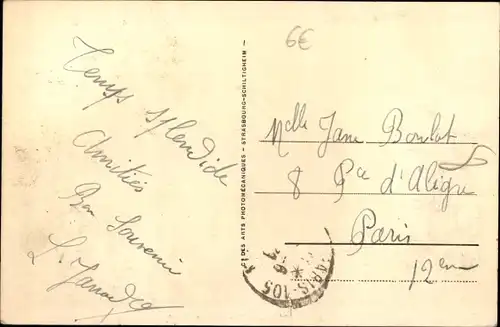 6€
Temps splendide
Amitiés
Bon Souvenir
DES ARTS PHOTOMÉCANIQUES - STRASBOURG-SCHILTIGHEIM
Mdlle Jane Boulat
8 Pce d'Aligre
Paris
12em
PARIS-105